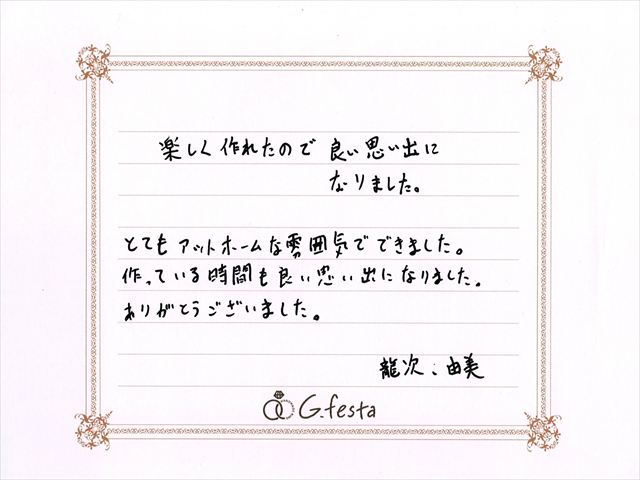 楽しく作れたので良い思い出に
なりました。
とてもアットホームな雰囲気でできました。
作っている時間も良い思い出になりました。
ありがとうございました。
龍次、由美
G.festa